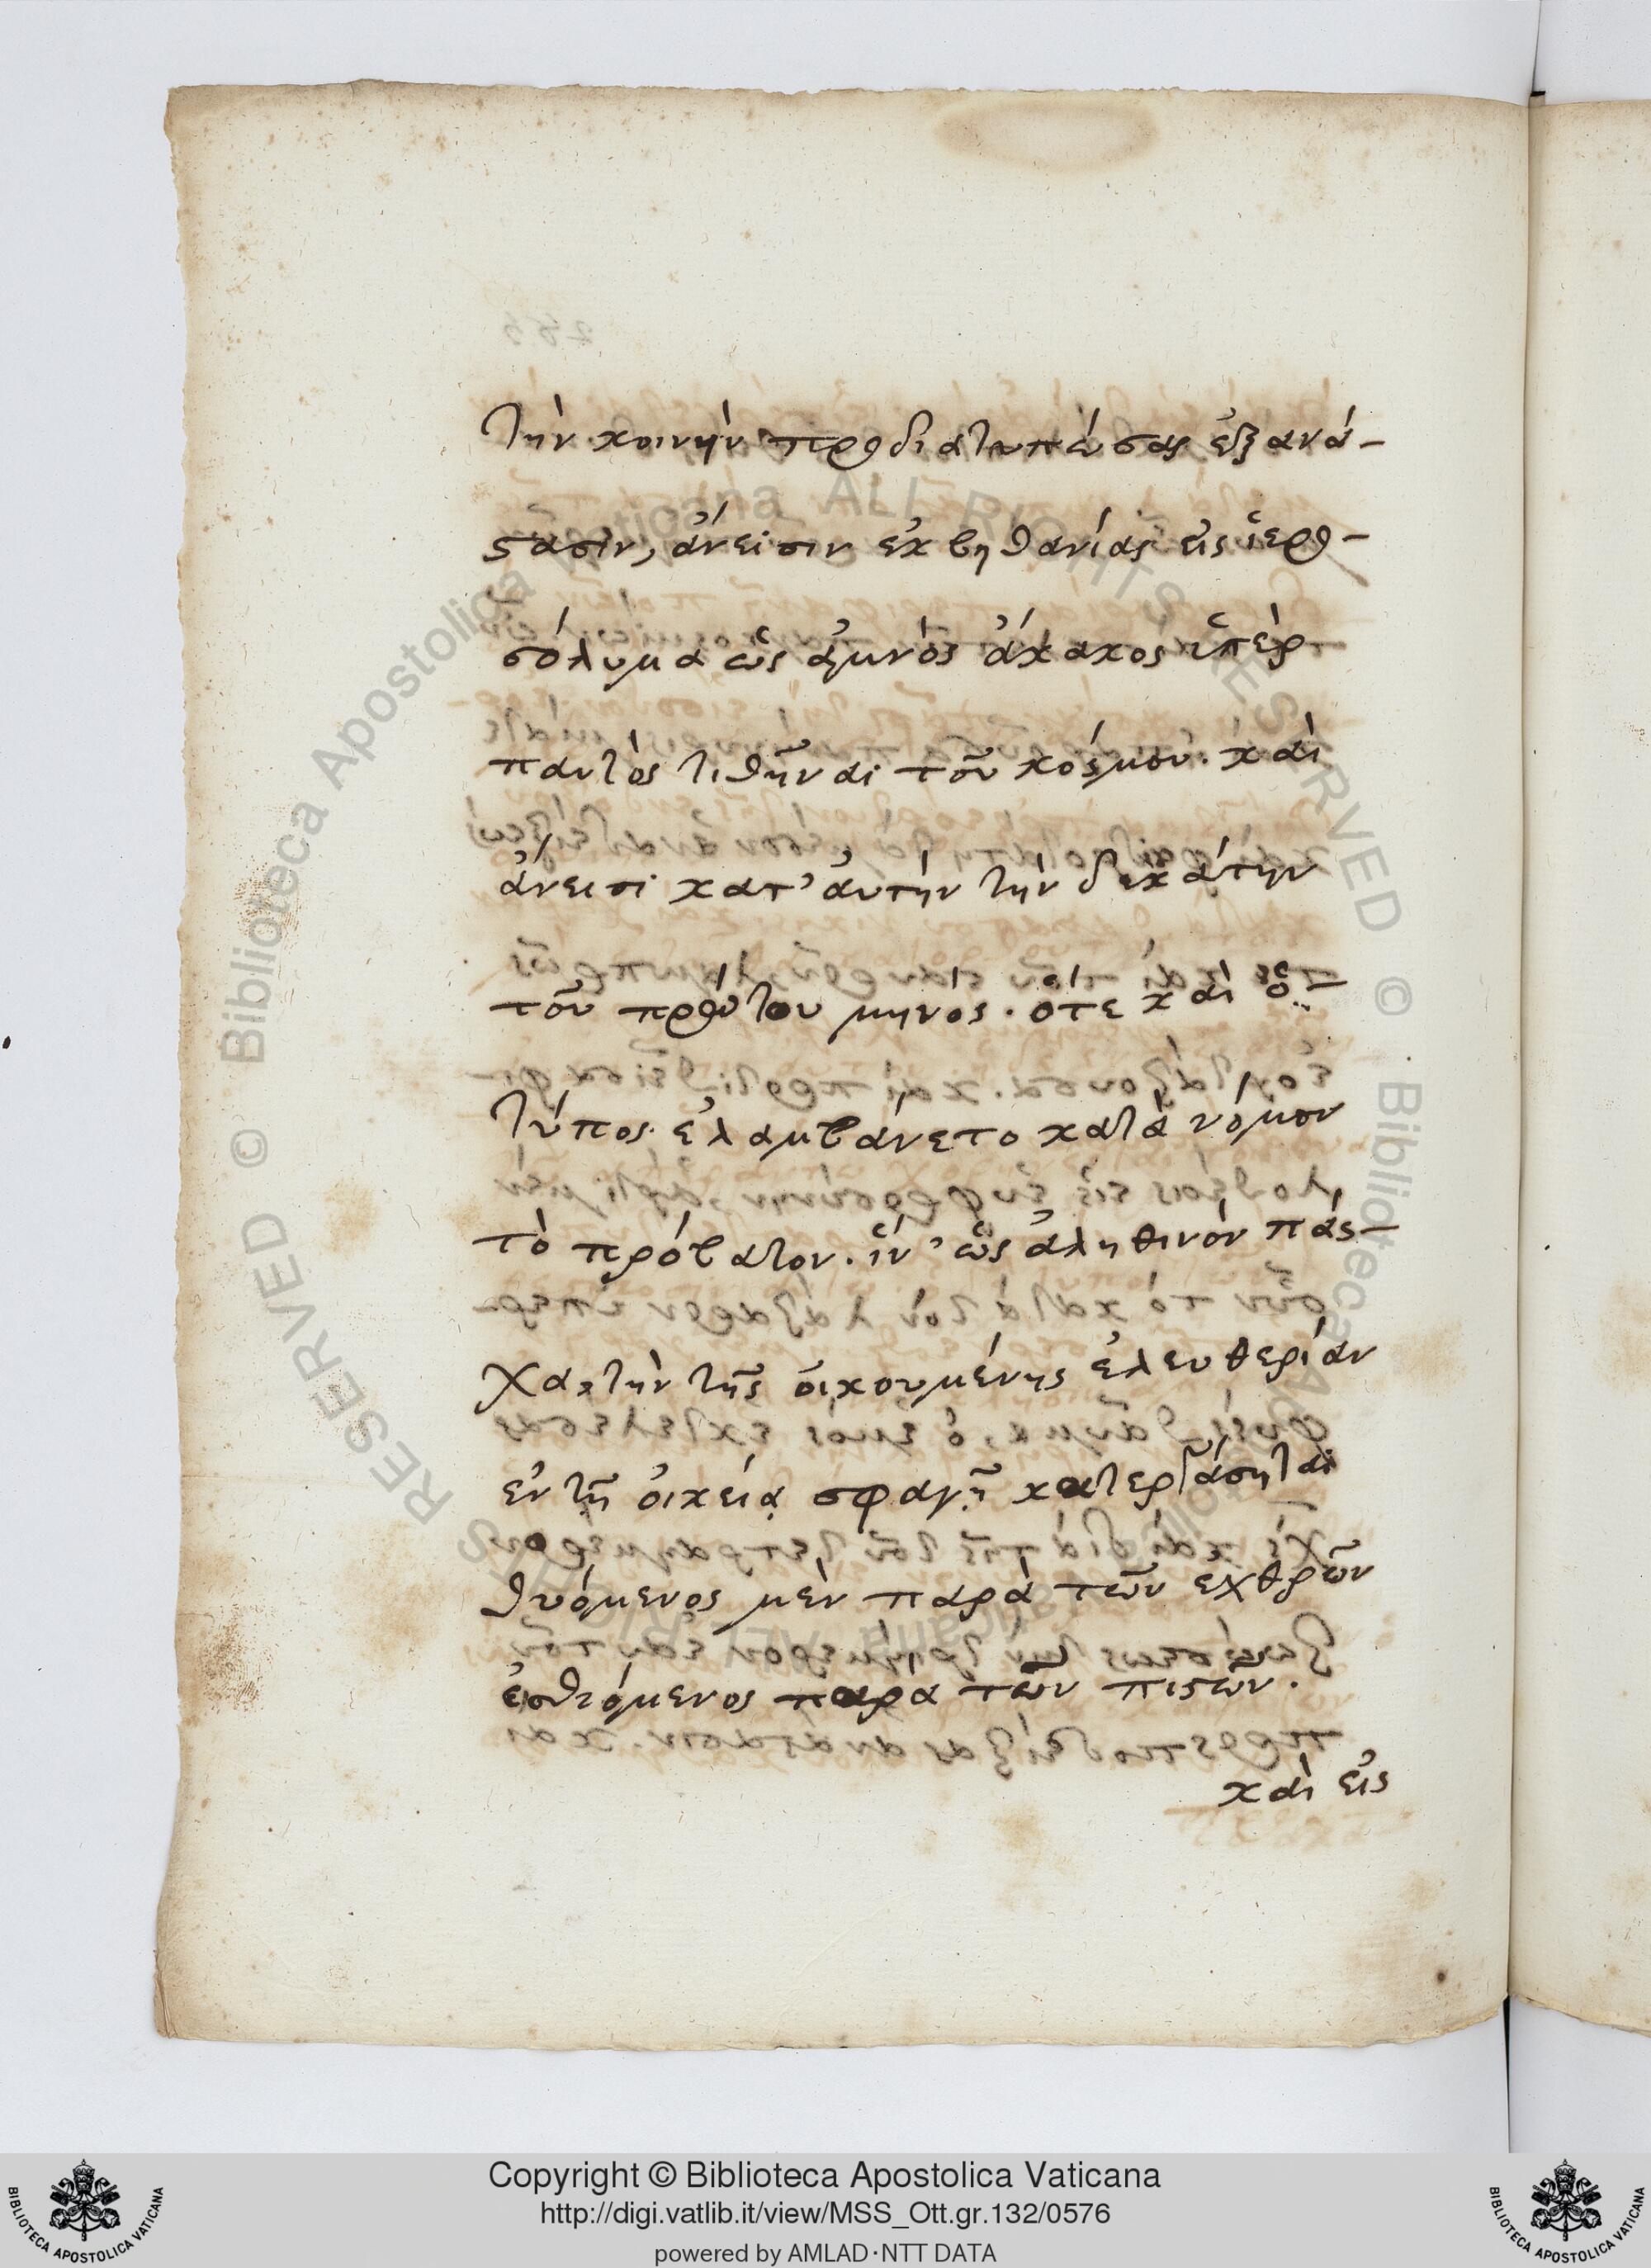 τὴν κοινὴν προδιατυπώσας ἐξανά-
στασιν, ἄνεισιν ἐκ βηθανίας εἰς ἱερο-
σόλυμα ὡς ἀμνὸς ἄκακος ὑπὲρ
παντὸς τιθῆναι τοῦ κόσμου. καὶ
ἄνεισι κατ' αὐτὴν τὴν δεκάτην
τοῦ πρώτου μηνὸς. ὅτε καὶ ὁ
τύπος ἐλαμβάνετο κατὰ νόμον
τὸ πρόβατον. ἵν' ὡς ἀληθινὸν πάσ-
χα τὴν τῆς οἰκουμένης ἐλευθερίαν
ἐν τῇ οἰκείᾳ σφαγῇ κατεργάσηται
θυόμενος μὲν παρὰ τῶν ἐχθρῶν
ἐσθιόμενος παρα τῶν πιστῶν.
καὶ εἰς
Biblioteca Apostolica Vaticana ALL RIGHTS RESERVED ©
Copyright © Biblioteca Apostolica Vaticana
http://digi.vatlib.it/view/MSS_Ott.gr.132/0576
powered by AMLAD·NTT DATA
BIBLIOTECA APOSTOLICA VATICANA
BIBLIOTECA APOSTOLICA VATICANA